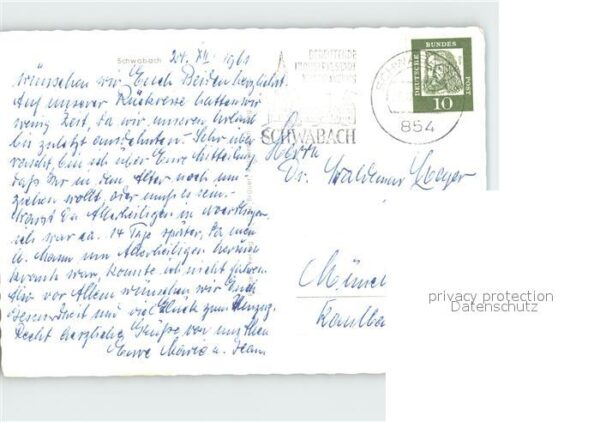 Schwabach
20. XII. 1961
wünschen wir Euch Beiden herzlichst.
Auf unserer Rückreise hatten wir
wenig Zeit, da wir unseren Urlaub
bis zuletzt ausdehnten. Sehr über
rascht, bin ich über Eure Mitteilung
daß Ihr in dem Alter noch um
ziehen wollt, oder muß es sein.
Warst Du Allerheiligen in
ich war ca. 14 Tage später, da mein
u. Mann um Allerheiligen herum
krank war, konnte ich nicht fahren.
Nur vor Allem wünschen wir Euch
Gesundheit und viel Glück zum Umzug.
Recht herzliche Grüße von uns
Eure Maria u.
BEDEUTENDE
SCHWABACH
854
DEUTSCHE
BUNDES
POST
10
Herrn
Dr. Waldemar
Münch
Kaulba
privacy protection
Datenschutz